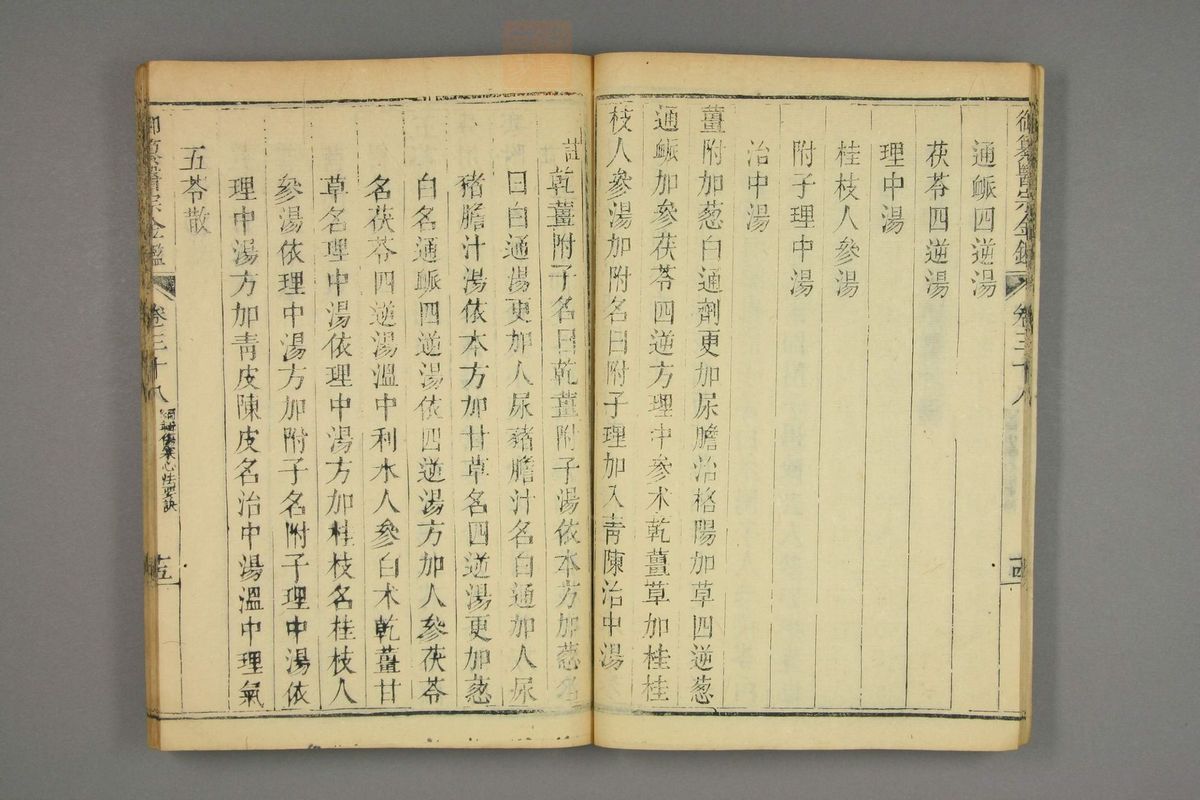 御纂醫宗金鑑 卷三十八 十四
通衇四逆湯
茯苓四逆湯
理中湯
桂枝人參湯
附子理中湯
治中湯
薑附加葱白通劑更加尿膽治格陽加草四逆葱
通衇加參茯苓四逆方理中參术乾薑草加桂桂
枝人參湯加附名曰附子理加入青陳治中湯
註乾薑附子名曰乾薑附子湯依本方加葱名
曰白通湯更加人尿豬膽汁名白通加人尿
豬膽汁湯依本方加甘草名四逆湯更加葱
白名通衇四逆湯依四逆湯方加人參茯苓
名茯苓四逆湯溫中利水人參白术乾薑甘
草名理中湯依理中湯方加桂枝名桂枝人
參湯依理中湯方加附子名附子理中湯依
理中湯方加靑皮陳皮名治中湯溫中理氣
五苓散
御纂醫宗金鑑 卷三十八 編輯傷寒心法要訣 十五